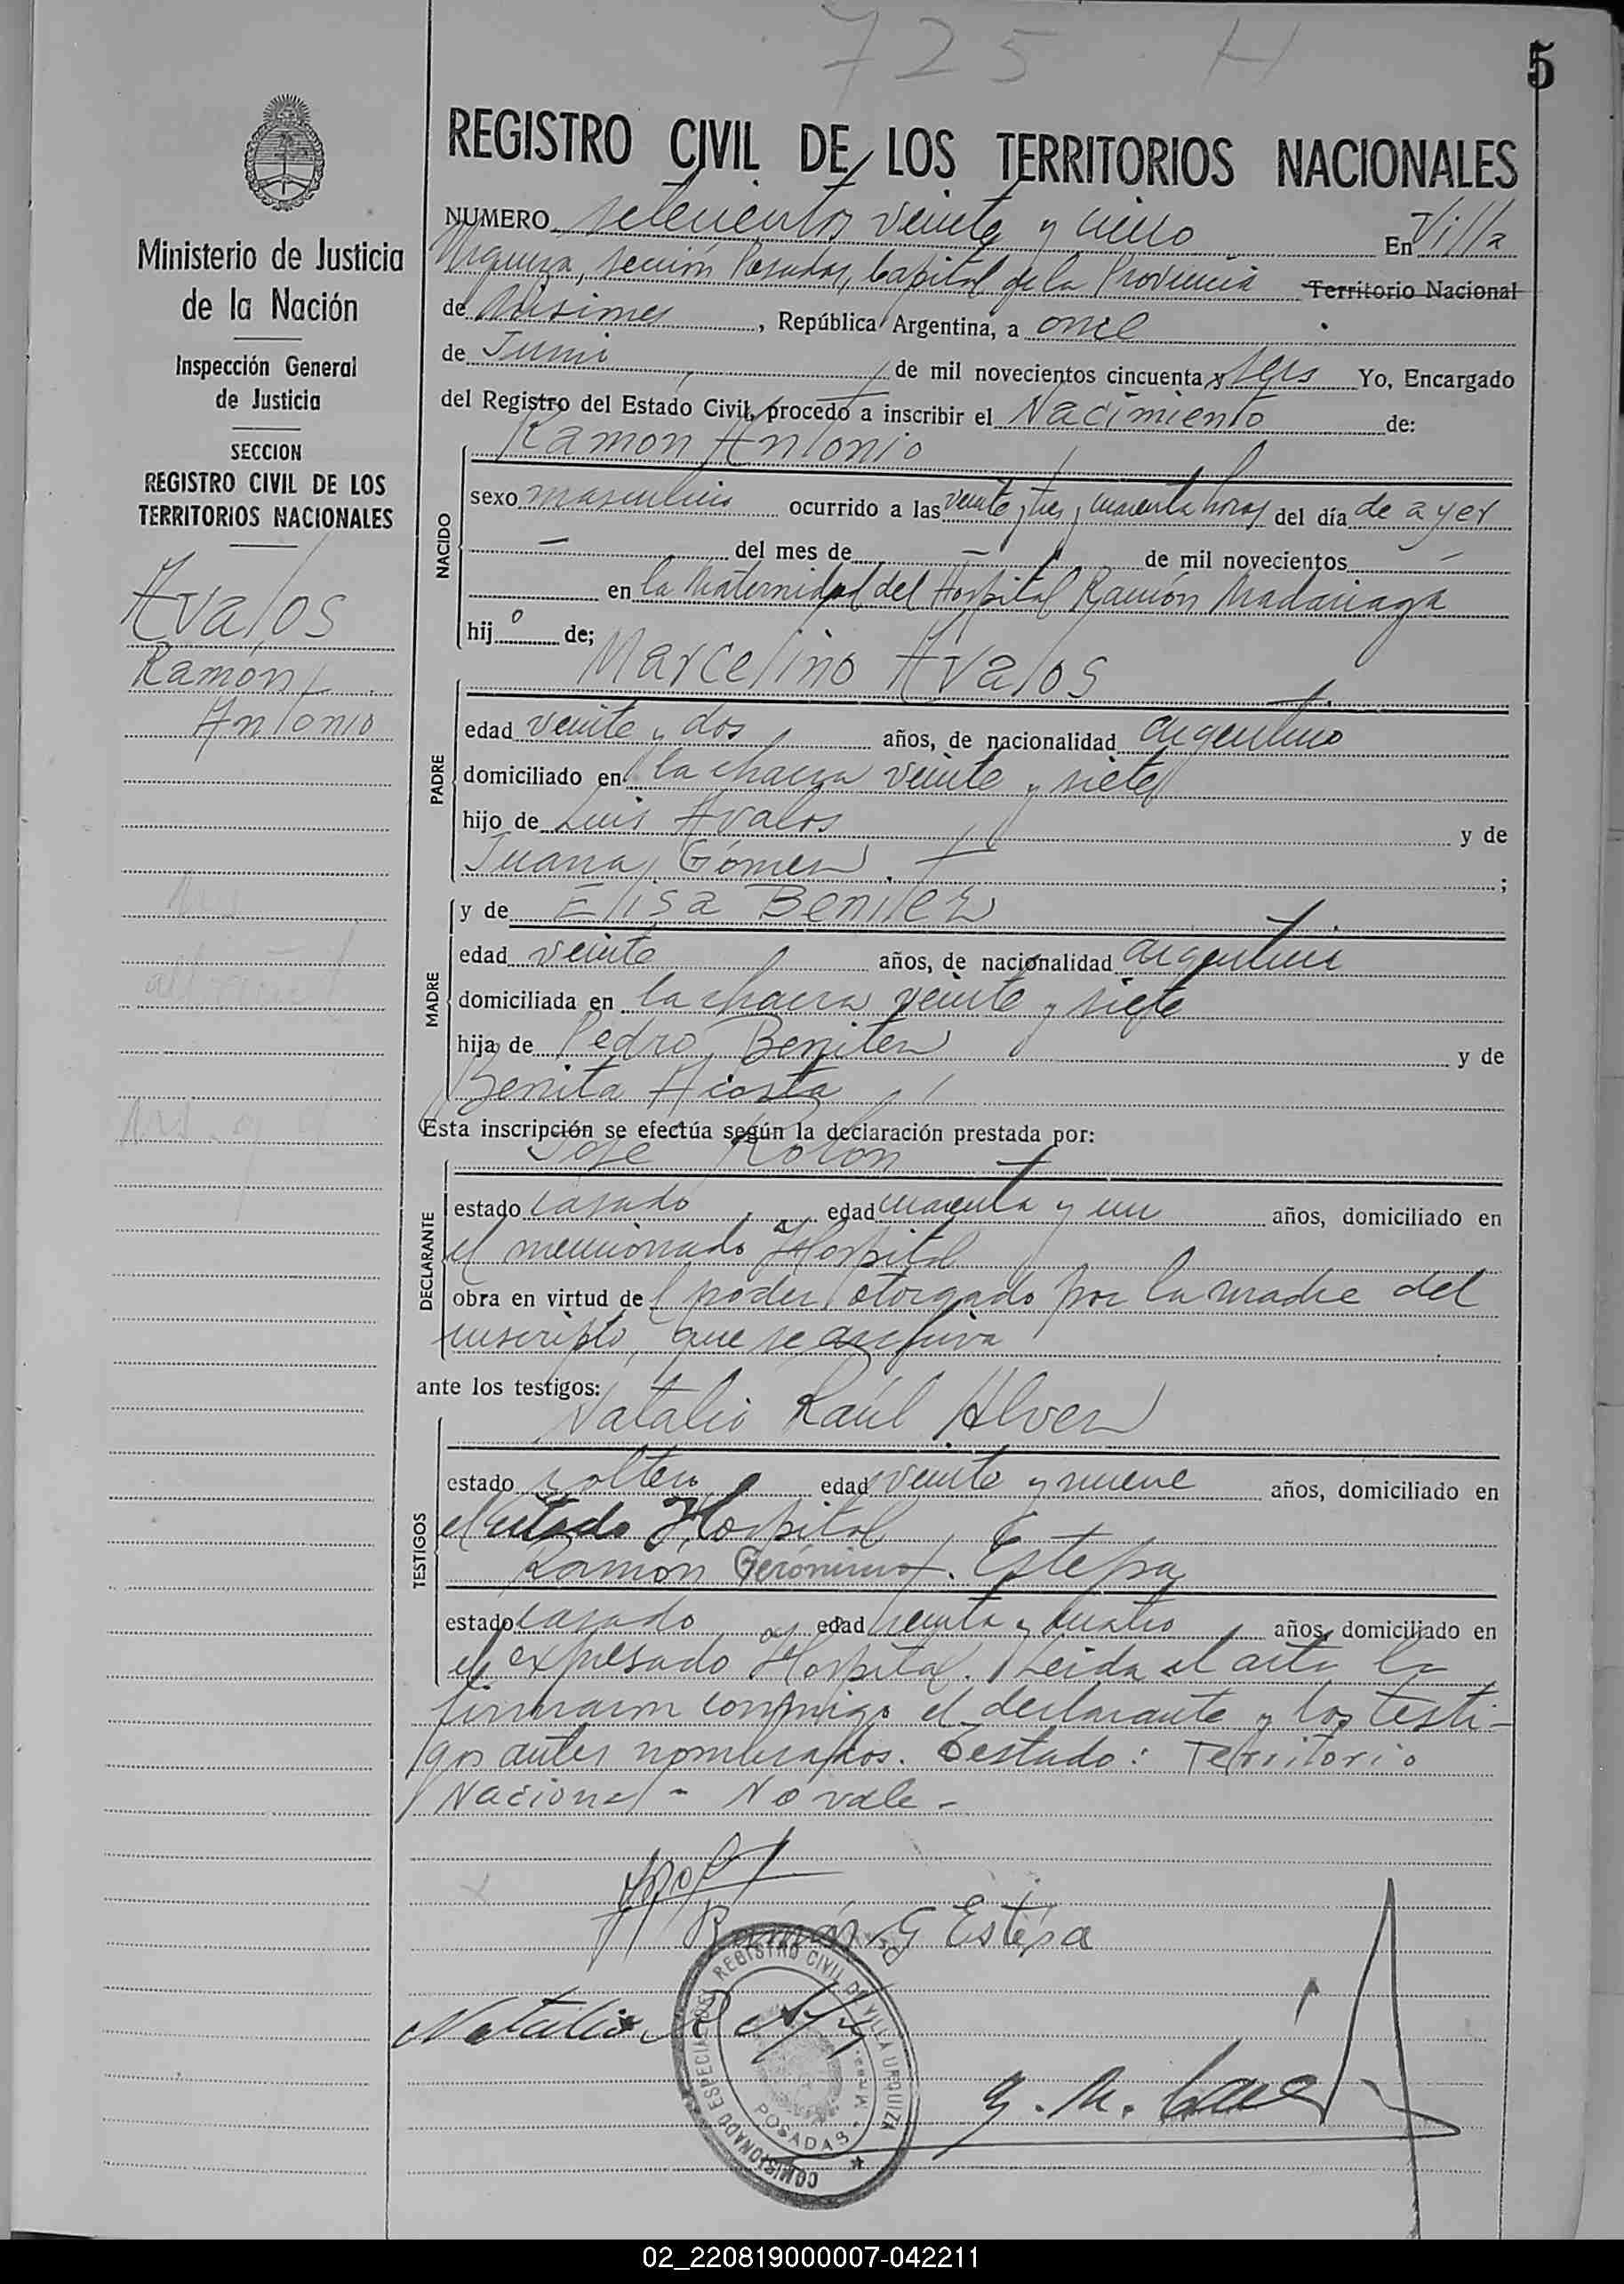 725 H
5
REGISTRO CIVIL DE LOS TERRITORIOS NACIONALES
Ministerio de Justicia
de la Nación
Inspección General
de Justicia
SECCION
REGISTRO CIVIL DE LOS
TERRITORIOS NACIONALES
Avalos
Ramón
Antonio
NUMERO setecientos veinte y cinco En Villa
Urquiza, sección Posadas, Capital de la Provincia Territorio Nacional
de Misiones, República Argentina, a once
de Junio de mil novecientos cincuenta y seis Yo, Encargado
del Registro del Estado Civil, procedo a inscribir el Nacimiento de:
Ramón Antonio
NACIDO
sexo masculino ocurrido a las veinte y tres y cuarenta horas del día de ayer
— del mes de — de mil novecientos —
en la Maternidad del Hospital Ramón Madariaga
hijo de;
Marcelino Avalos
PADRE
edad veinte y dos años, de nacionalidad argentino
domiciliado en la chacra veinte y siete
hijo de Luis Avalos y de
Juana Gómez ;
MADRE
y de Elisa Benitez
edad veinte años, de nacionalidad argentina
domiciliada en la chacra veinte y siete
hija de Pedro Benitez y de
Benita Acosta
Esta inscripción se efectúa según la declaración prestada por:
José Rolón
DECLARANTE
estado casado edad cuarenta y un años, domiciliado en
el mencionado Hospital
obra en virtud del poder otorgado por la madre del
inscripto, que se archiva
ante los testigos:
Natalio Raúl Alvez
TESTIGOS
estado soltero edad veinte y nueve años, domiciliado en
el citado Hospital
Ramón Gerónimo Estepa
estado casado edad treinta y cuatro años, domiciliado en
el expresado Hospital. Leida el acta la
firmaron conmigo el declarante y los testi-
gos antes nombrados. Testado: Territorio
Nacional - No vale -
Ramón G Estepa
Natalio R
REGISTRO CIVIL DE VILLA URQUIZA
COMISIONADO ESPECIAL
POSADAS
02_220819000007-042211